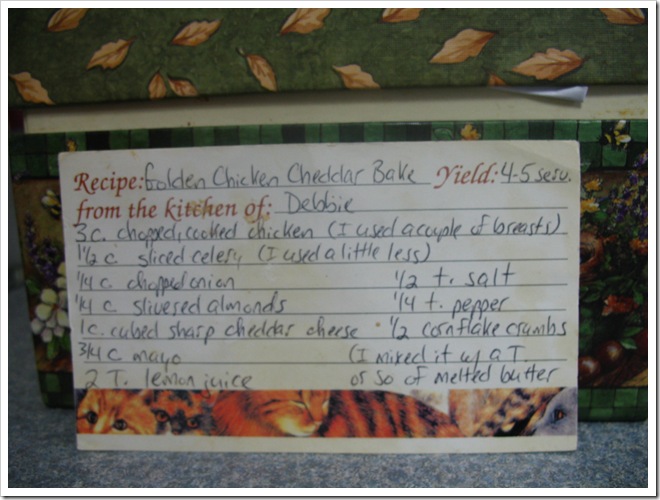 Recipe: Golden Chicken Cheddar Bake Yield: 4-5 serv.
from the kitchen of: Debbie
3 c. chopped, cooked chicken (I used a couple of breasts)
1 1/2 c sliced celery (I used a little less)
1/4 c chopped onion 1/2 t. salt
1/4 c slivered almonds 1/4 t. pepper
1 c. cubed sharp cheddar cheese 1/2 cornflake crumbs
3/4 c mayo (I mixed it w/ a T.
2 T. lemon juice or so of melted butter